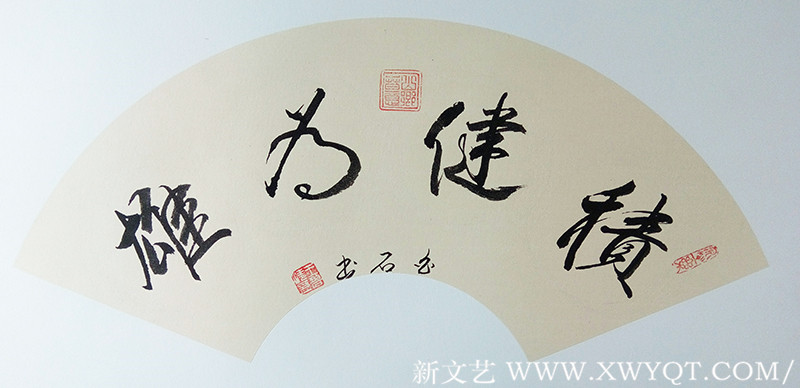 積健为雄
石书
新文艺 WWW.XWYQT.COM/